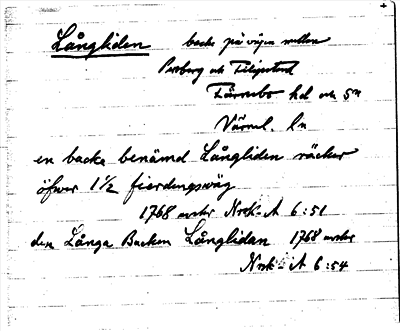 Långliden backe på vägen mellan
Persberg och Filipstad
Färnebo hd och sn
Värml. ln
en backe benämd Långliden räcker
öfwer 1 1/2 fierdingswäg
1768 Nrk. A 6:51
den Långa Backen Långlidan 1768
Nrk. A 6:54